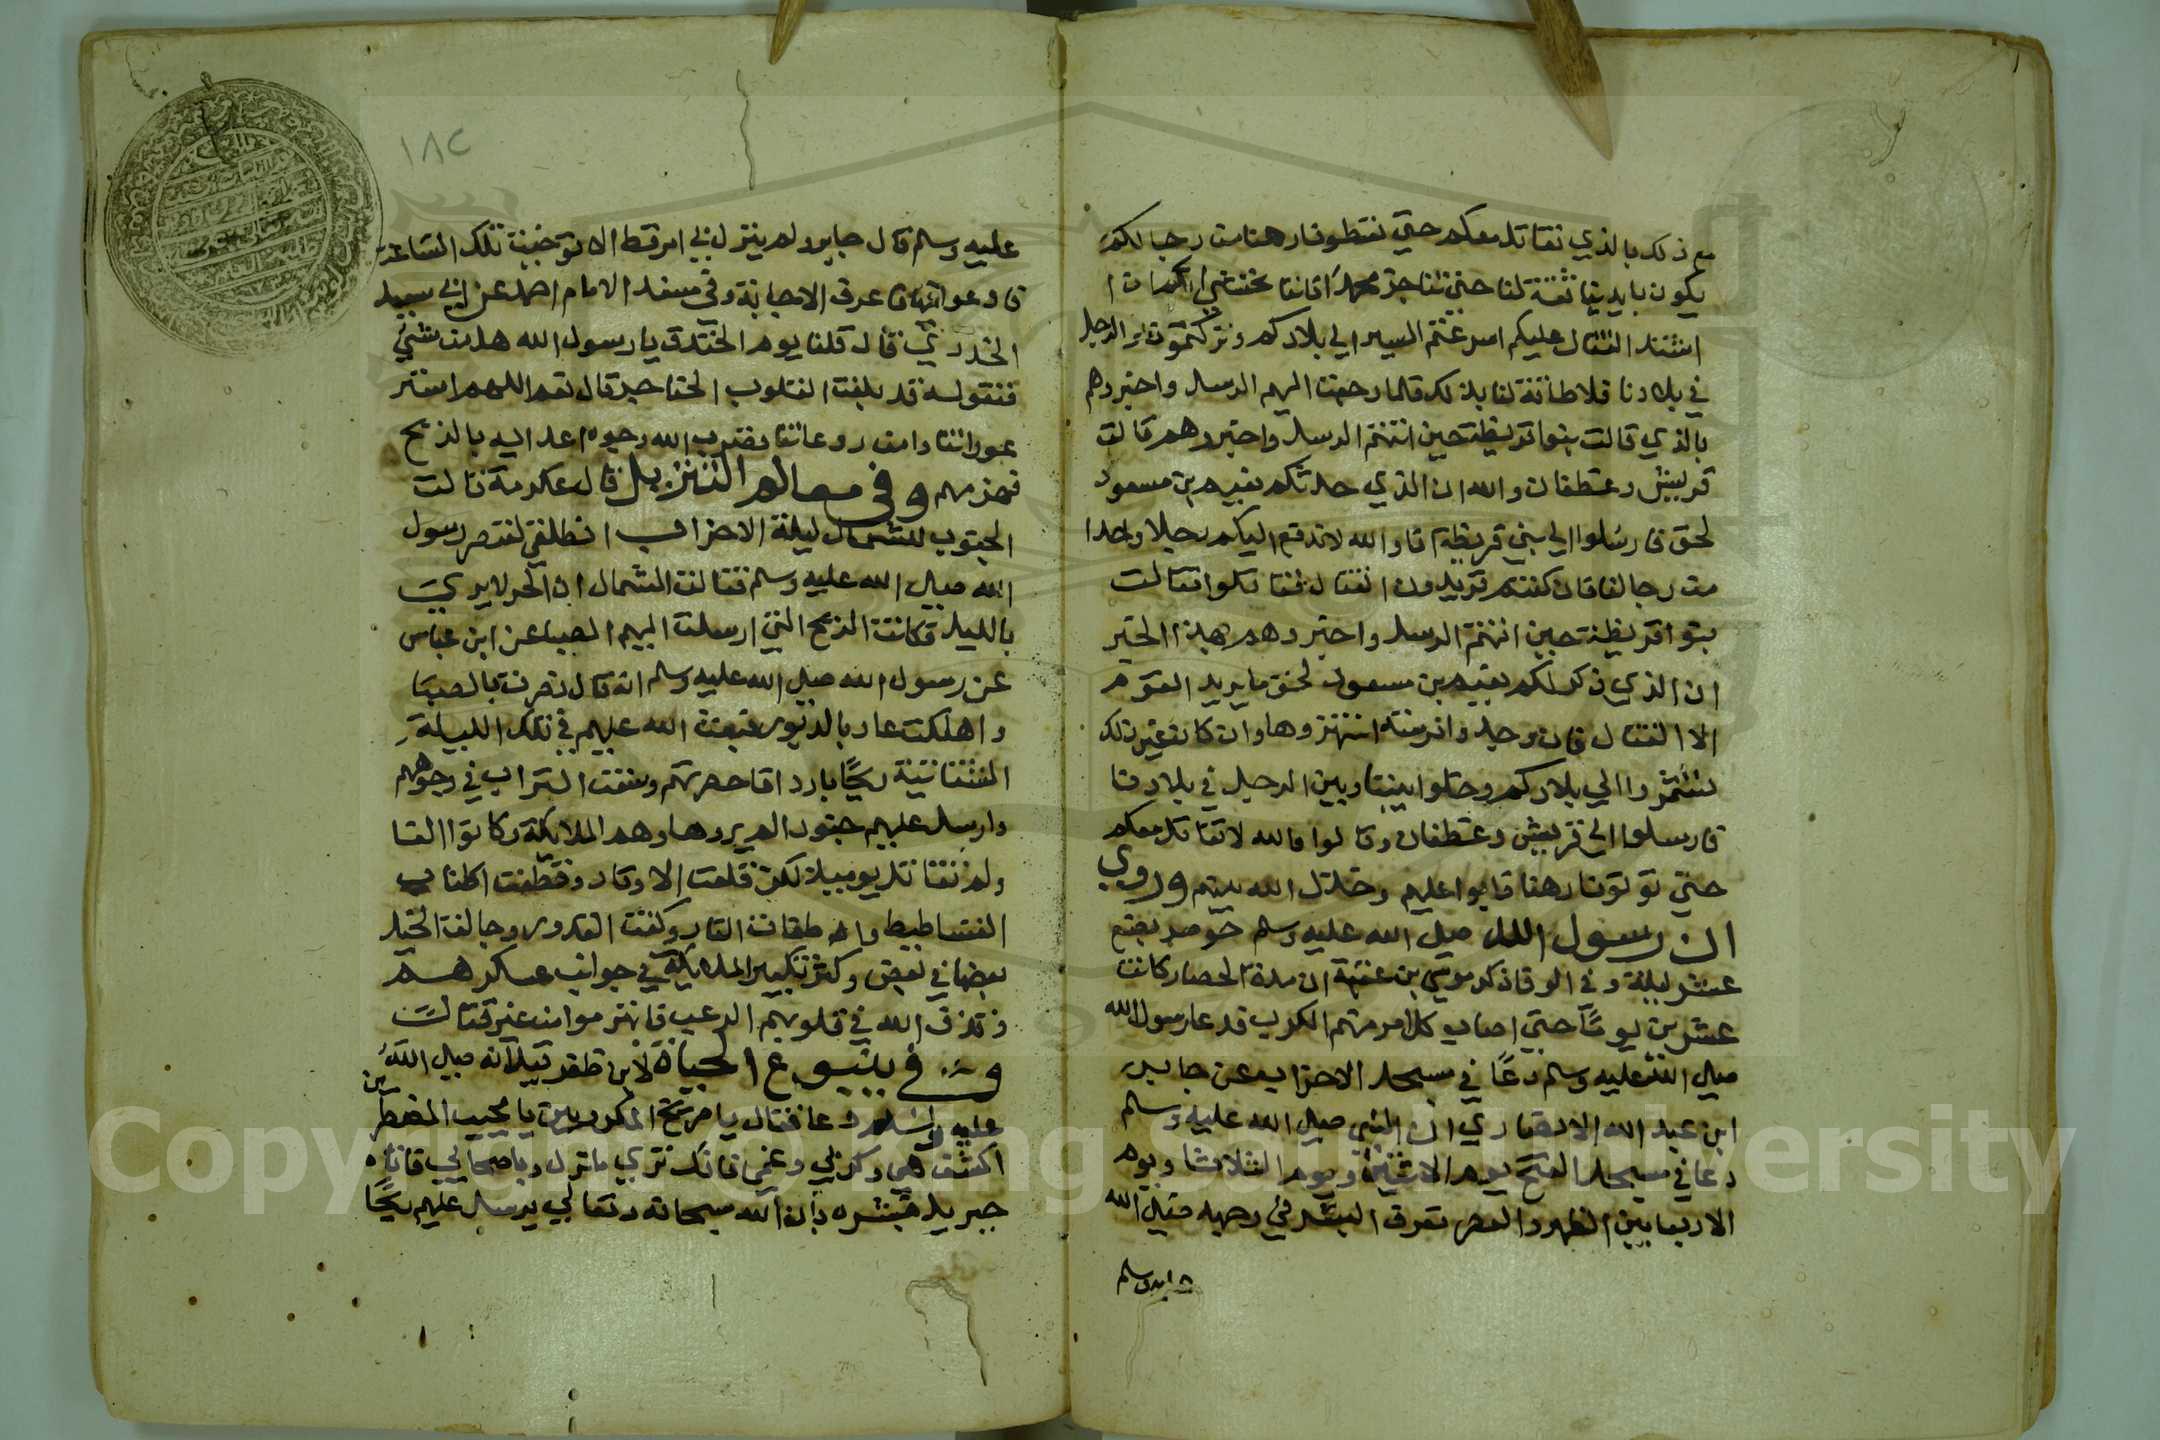 مع ذلك بالذي نقاتل معكم حتى تعطونا رهنا من رجالكم
يكون بايدينا ثقة لنا حتى نناجز محمدا فاننا نخشى ان
اشتد القتال عليكم اسرعتم السير الي بلادكم وتركتمونا والرجل
في بلادنا فلا طاقة لنا بذلك فلما رجعت اليهم الرسل واخبروهم
بالذي قالت بنوا قريظة حين اتتهم الرسل واخبروهم قالت
قريش وغطفان والله ان الذي حدثكم نعيم بن مسعود
لحق فارسلوا الي بني قريظة انا والله لا ندفع اليكم رجلا واحدا
من رجالنا فان كنتم تريدون القتال فقاتلوا فقالت
بنوا قريظة حين اتتهم الرسل واخبروهم بهذا الخبر
ان الذي ذكر لكم نعيم بن مسعود لحق ما يريد القوم
الا القتال فان وجدوا فرصة انتهزوها وان كان غير ذلك
تشمروا الي بلادكم وخلوا بيننا وبين الرجل في بلادنا
فارسلوا الي قريش وغطفان وقالوا والله لا نقاتل معكم
حتى توتونا رهنا فابوا عليهم وخذل الله بينهم وروي
ان رسول الله صلى الله عليه وسلم حوصر بضع
عشر ليلة وفي الوفا ذكر موسى بن عقبة ان مدة الحصار كانت
عشرين يوما حتى اصاب كل امر منهم الكرب فدعا رسول الله
صلى الله عليه وسلم دعا في مسجد الاحزاب عن جابر
ابن عبد الله الانصاري ان النبي صلى الله عليه وسلم
دعا في مسجد الفتح يوم الاثنين ويوم الثلاثا ويوم
الاربعا بين الظهر والعصر نعرف البشر في وجهه صلى الله
عليه وسلم
١٨٢
عليه وسلم قال جابر ولم ينزل بي امر قط الا توخيت تلك الساعة
فادعوا فيها فاعرف الاجابة وفي مسند الامام احمد عن ابي سعيد
الخدري قال قلنا يوم الخندق يا رسول الله هل من شي
فنقوله قد بلغت القلوب الحناجر قال نعم اللهم استر
عوراتنا وامن روعاتنا فضرب الله وجوه اعدايه بالريح
فهزمهم وفي معالم التنزيل قال عكرمة قالت
الجنوب للشمال ليلة الاحزاب انطلقي لنصر رسول
الله صلى الله عليه وسلم فقالت الشمال ان الحر لا يسري
بالليل فكانت الريح التي ارسلت اليهم الصبا عن ابن عباس
عن رسول الله صلى الله عليه وسلم انه قال نصرت بالصبا
واهلكت عاد بالدبور فبعث الله عليهم في تلك الليلة
الشتانية ريحا باردا فاحصرتهم وسفت التراب في وجوههم
وارسل عليهم جنودا لم يروها وهم الملايكة وكانوا الفا
ولم تقاتل يوميذ لكن قلعت الاوتاد وقطعت اطناب
الفساطيط واطفات النار وكفت القدور وجالت الخيل
بعضها في بعض وكثر تكبير الملايكة في جوانب عسكرهم
وقذف الله في قلوبهم الرعب فانهزموا من غير قتال
وفي ينبوع الحياة لابن ظفر قيل انه صلى الله
عليه وسلم دعا فقال يا صريخ المكروبين يا مجيب المضطرين
اكشف همي وكربي وغمي فانك ترى ما نزل بي وباصحابي فاتاه
جبريل فبشره بان الله سبحانه وتعالى يرسل عليهم ريحا
Copyright © King Saud University